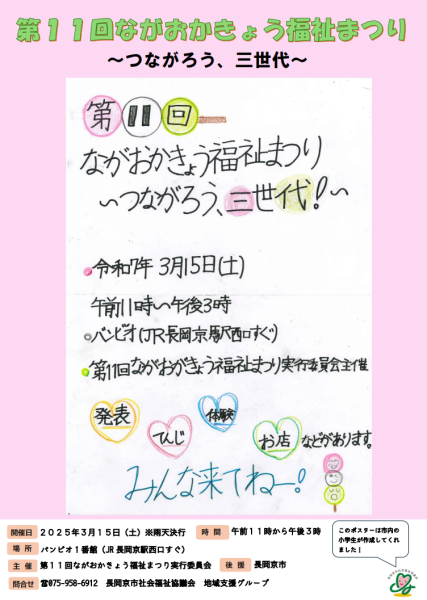 第１１回ながおかきょう福祉まつり
～つながろう、三世代～
第11回
ながおかきょう福祉まつり
～つながろう、三世代！～
令和7年 3月15日(土)
午前11時～午後3時
バンビオ(JR長岡京駅西口すぐ)
第11回ながおかきょう福祉まつり実行委員会主催
発表
てんじ
体験
お店 などがあります。
みんな来てねー！
開催日 ２０２５年３月１５日（土）※雨天決行 時間 午前１１時から午後３時
場所 バンビオ１番館（JR長岡京駅西口すぐ）
主催 第１１回ながおかきょう福祉まつり実行委員会 後援 長岡京市
問合せ ☎075-958-6912 長岡京市社会福祉協議会 地域支援グループ
このポスターは市内の
小学生が作成してくれ
ました！